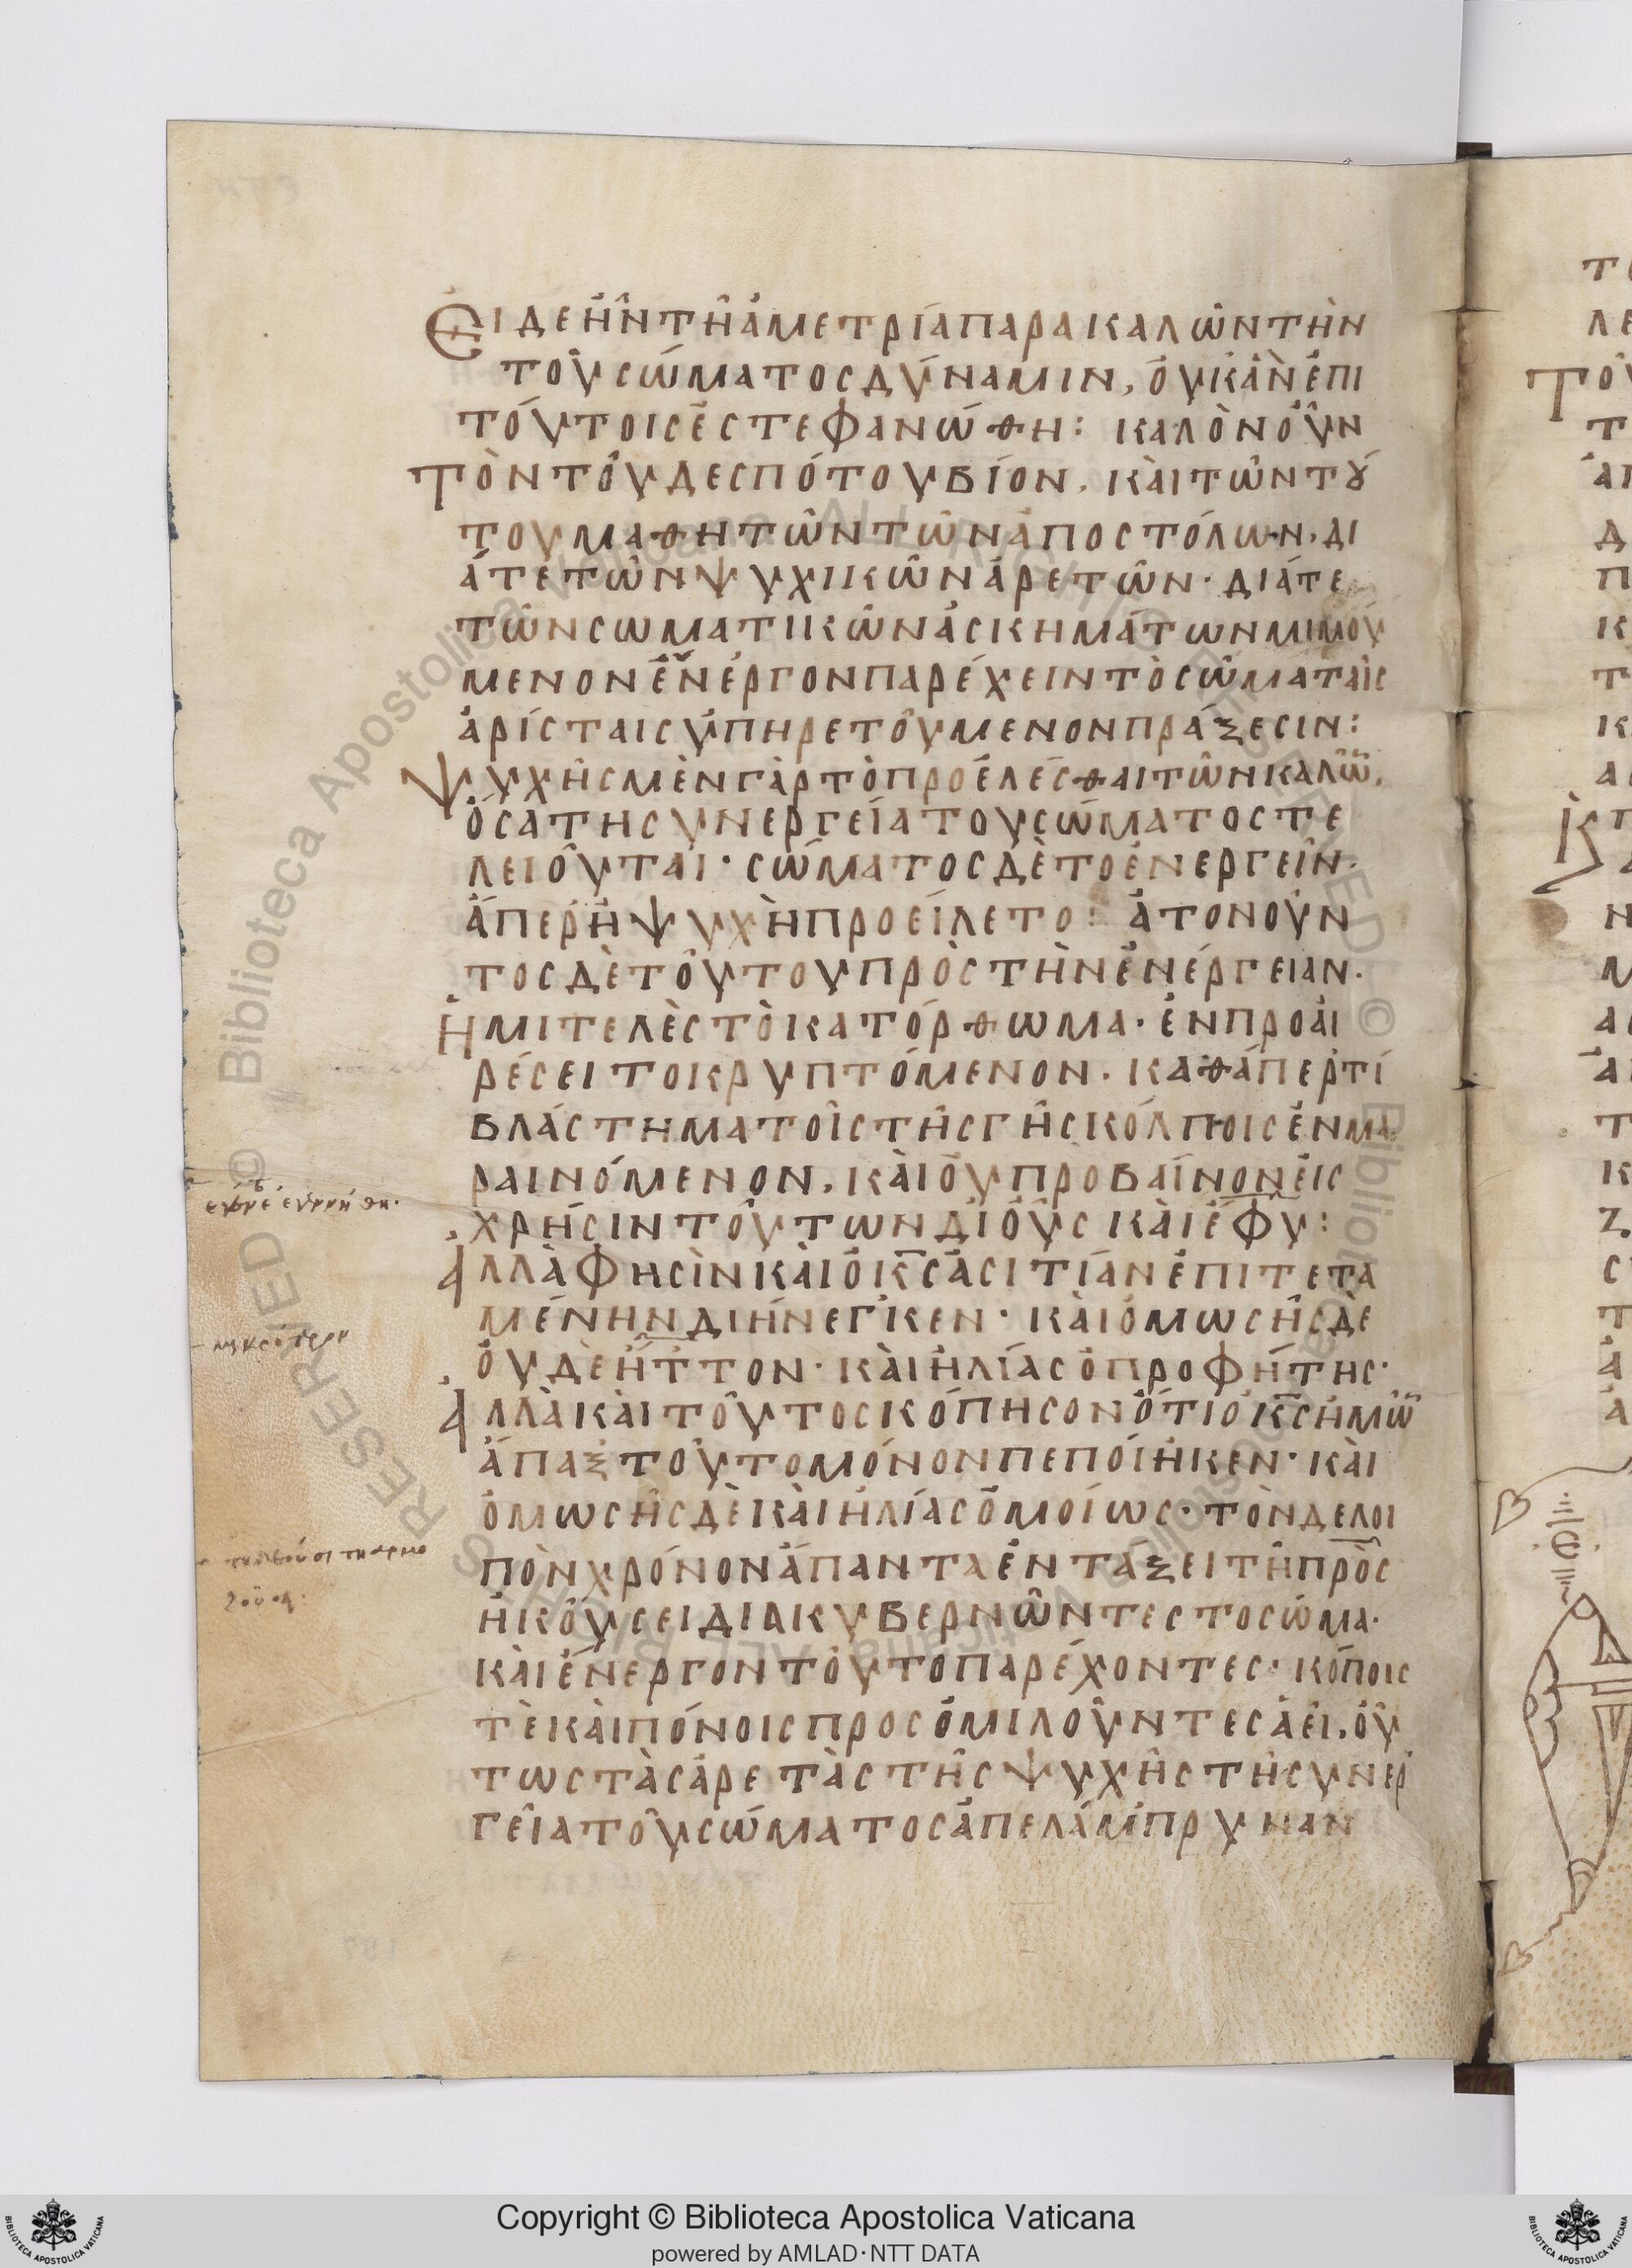 ΕΙΔΕἯΝΤΗ͂ἈΜΕΤΡΊΑΠΑΡΑΚΑΛΩ͂ΝΤῊΝ
ΤΟΥ͂ΣΏΜΑΤΟΣΔΎΝΑΜΙΝ, ὈΥΚἊΝἘΠΙ
ΤΌΥΤΟΙΣἘΣΤΕΦΑΝΏΘΗ: ΚΑΛῸΝΟὟΝ
ΤῸΝΤΟΥ͂ΔΕΣΠΌΤΟΥΒΊΟΝ, ΚᾺΙΤΩ͂ΝΤȢ́
ΤΟΥΜΑΘΗΤΩ͂ΝΤΩ͂ΝἈΠΟΣΤΌΛΩΝ, ΔΙ
ΆΤΕΤΩ͂ΝΨΥΧΙΚΩ͂ΝἈΡΕΤΩ͂Ν· ΔΙΆΤΕ
ΤΩ͂ΝΣΩΜΑΤΙΚΩ͂ΝἈΣΚΗΜΆΤΩΝΜΙΜΟΎ
ΜΕΝΟΝἘΝΈΡΓΟΝΠΑΡΈΧΕΙΝΤῸΣΩ͂ΜΑΤΑΙ͂Σ
ἈΡΊΣΤΑΙΣὙΠΗΡΕΤΟΥ͂ΜΕΝΟΝΠΡΆΞΕΣΙΝ:
ΨΥΧΗ͂ΣΜῈΝΓᾺΡΤῸΠΡΟΕΛΈΣΘΑΙΤΩ͂ΝΚΑΛΩ͂̅,
ὍΣΑΤΗΣΥΝΕΡΓΕΊΑΤΟΥΣΏΜΑΤΟΣΤΕ
ΛΕΙΟΥ͂ΤΑΙ· ΣΏΜΑΤΟΣΔῈΤΟἘΝΕΡΓΕΙ͂Ν·
ἍΠΕΡἩΨΥΧῊΠΡΟΕΊΛΕΤΟ: ἈΤΟΝΟΥ͂Ν
ΤΟΣΔῈΤΟΎΤΟΥΠΡῸΣΤῊΝἘΝΈΡΓΕΙΑΝ·
ἩΜΙΤΕΛῈΣΤῸΚΑΤΌΡΘΩΜΑ· ἘΝΠΡΟΆΙ
ΡΈΣΕΙΤΟΚΡΥΠΤΌΜΕΝΟΝ· ΚΑΘΆΠΕΡΤΊ
ΒΛΆΣΤΗΜΑΤΟΙ͂ΣΤΗ͂ΣΓΗ͂ΣΚΌΛΠΟΙΣἘΝΜΑ
ΡΑΙΝΌΜΕΝΟΝ, ΚᾺΙὈΥΠΡΟΒΑΊΝΟΝἘΙΣ
ΧΡΗ͂ΣΙΝΤΟΎΤΩΝΔΙΟὟΣΚᾺΙἘΦΥ:
ἈΛΛᾺΦΗΣῚΝΚᾺΙὉΚ̅ΣἈΣΙΤΊΑΝἘΠΙΤΕΤΑ
ΜΈΝΗΝΔΙΉΝΕΓΚΕΝ· ΚᾺΙὉΜΩΣΗ͂ΣΔῈ
ὈΥΔῈἯΤΤΟΝ· ΚᾺΙἩΛΊΑΣὉΠΡΟΦΉΤΗΣ·
ἈΛΛᾺΚᾺΙΤΟΥ͂ΤΟΣΚΌΠΗΣΟΝὍΤΙὉΚ̅ΣἩΜΩ͂̅
ἍΠΑΞΤΟΥ͂ΤΟΜΌΝΟΝΠΕΠΌΙΗΚΕΝ· ΚᾺΙ
ὉΜΩΣΗ͂ΣΔῈΚᾺΙἩΛΊΑΣὉΜΟΊΩΣ· ΤῸΝΔΕΛΟΙ
ΠῸΝΧΡΌΝΟΝἍΠΑΝΤΑἘΝΤΆΞΕΙΤΗ͂ΠΡΟΣ
ΗΚΟΎΣΕΙΔΙΑΚΥΒΕΡΝΩ͂ΝΤΕΣΤΟΣΏΜΑ·
ΚᾺΙἘΝΕΡΓΟΝΤΟΥ͂ΤΟΠΑΡΈΧΟΝΤΕΣ· ΚΌΠΟΙΣ
ΤῈΚᾺΙΠΌΝΟΙΣΠΡΟΣΟΜΙΛΟΥ͂ΝΤΕΣἈΕΊ, ὉΥ
ΤΩΣΤᾺΣἈΡΕΤᾺΣΤΗ͂ΣΨΥΧΗ͂ΣΤΗ͂ΣΥΝΕΡ
ΓΕΊΑΤΟΥ͂ΣΏΜΑΤΟΣἈΠΕΛΆΜΠΡΥΝΑΝ
Copyright © Biblioteca Apostolica Vaticana
powered by AMLAD·NTT DATA